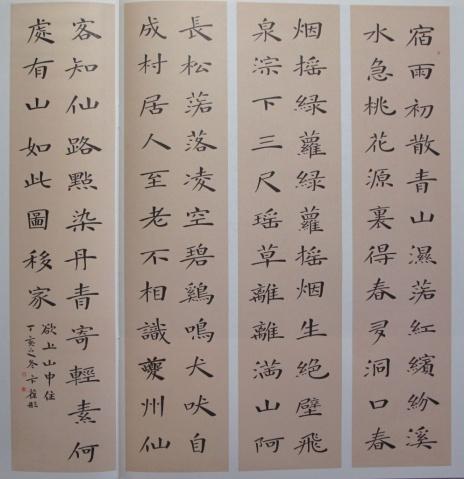 宿雨初散青山濕落紅繽紛溪
水急桃花源裏得春多洞口春
烟摇綠蘿綠蘿摇烟生絕壁飛
泉淙下三尺瑶草離離满山阿
長松落落凌空碧鷄鳴犬吠自
成村居人至老不相識夔州仙
客知仙路點染丹青寄輕素何
處有山如此圖移家
欲上山中住
丁亥之冬